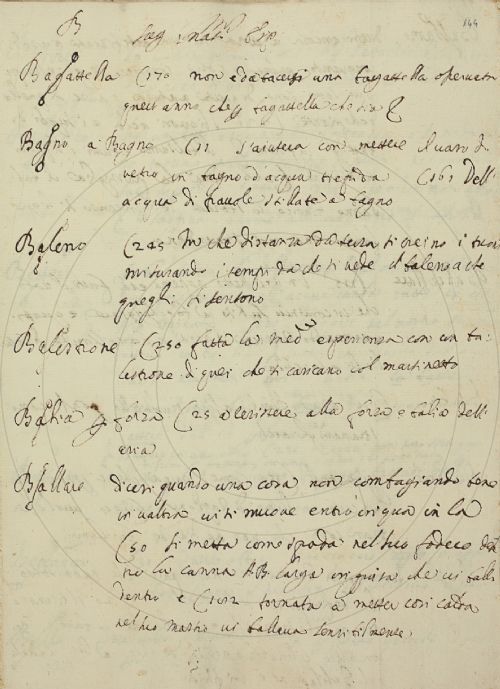 B Sag: Nat: Esp: 144
Bagattella (170 non è da tacersi una bagattella operata
quest'anno che bagattella che sia
Bagno a Bagno (11 s'aiuterà con mettere il vaso di
vetro in bagno d'acqua tiepida (161 Dell'
acqua di fravole stillate a bagno
Baleno (245 In che distanza da terra si creino i tuoni
misurando i tempi da che si vede il baleno a che
quegli si sentono
Balestrone (250 fatta la med.ma esperienza con un ba-
lestrone di quei che si caricano col martinetto
Balìa forza (25 ascrivere alla forza e balìa dell'
aria
Ballare dicesi quando una cosa non combagiando bene
in un'altra vi si muove entro in qua in là
(50 si metta come spada nel suo fodero den-
tro la canna AB larga in guisa che vi balli
dentro e (102 tornata a metter così calda
nel suo mastio vi ballava sensibilmente